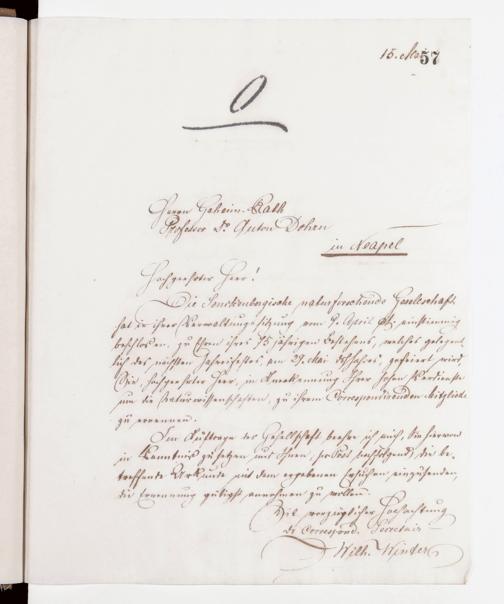 15. Mai 57
O
Herrn Geheim-Rath
Professor Dr Anton Dohrn
in Neapel
Hochgeehrter Herr!
Die Senckenbergische naturforschende Gesellschaft
hat in ihrer Verwaltungssitzung vom 9. April einstimmig
beschlossen, zu Ehren ihres 75 jährigen Bestehens, welches gelegent-
lich des nächsten Jahresfestes, am 29. Mai gefeiert wird
Sie, hochgeehrter Herr, in Anerkennung Ihrer hohen Verdienste
um die Naturwissenschaften, zu ihrem Correspondirenden Mitgliede
zu ernennen.
Im Auftrage der Gesellschaft beehre ich mich, Sie hiervon
in Kenntniss zu setzen und Ihnen, die be-
treffende Urkunde mit dem ergebenen Ersuchen einzusenden,
die Ernennung gütigst annehmen zu wollen.
Mit vorzüglicher Hochachtung
der Correspond. Secretair
Wilh. Winter